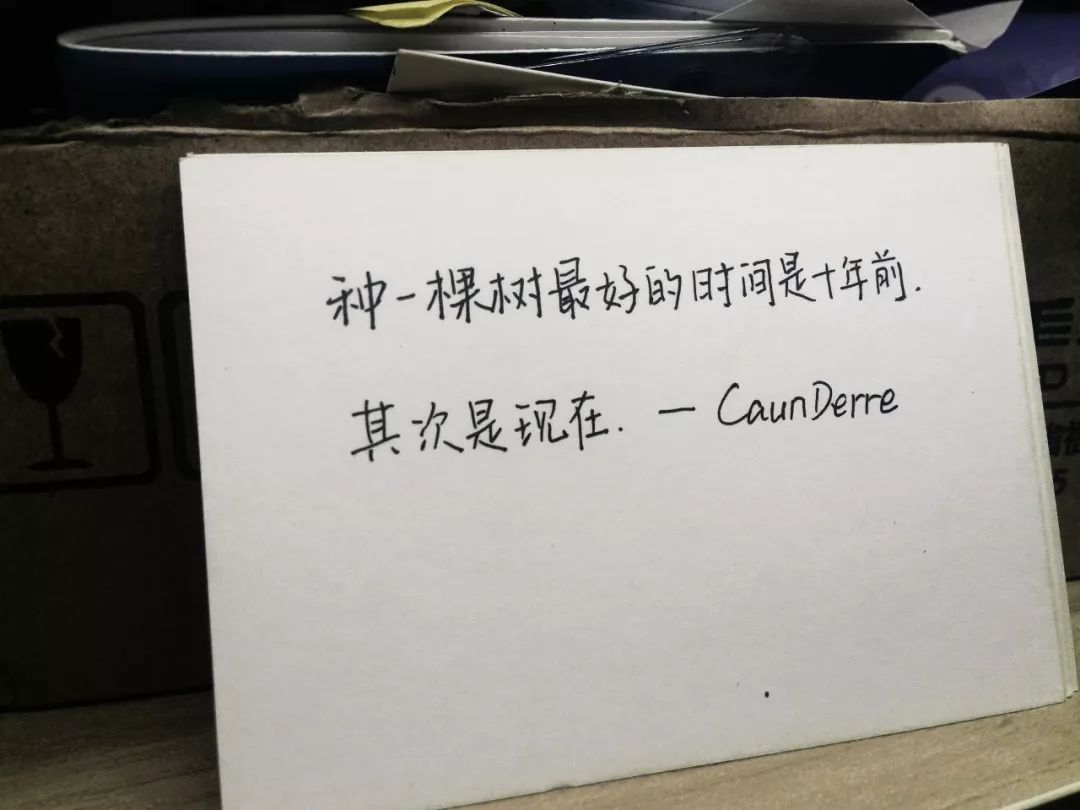 种一棵树最好的时间是十年前.
其次是现在. — CaunDerre